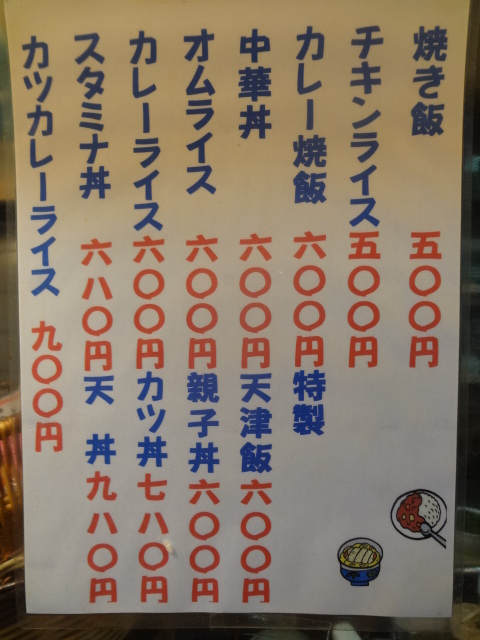 焼き飯 五〇〇円
チキンライス 五〇〇円
カレー焼飯 六〇〇円
特製
中華丼 六〇〇円
天津飯 六〇〇円
オムライス 六〇〇円
親子丼 六〇〇円
カレーライス 六〇〇円
カツ丼 七八〇円
スタミナ丼 六八〇円
天 丼 九八〇円
カツカレーライス 九〇〇円